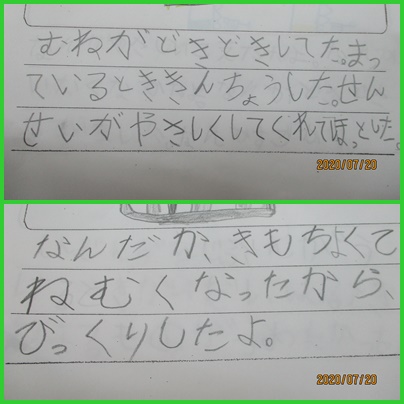 むねがどきどきしてた。まっ
ているとききんちょうした。せん
せいがやさしくしてくれてほっとした。
2020/07/20
なんだか、きもちよくて
ねむくなったから、
びっくりしたよ。
2020/07/20